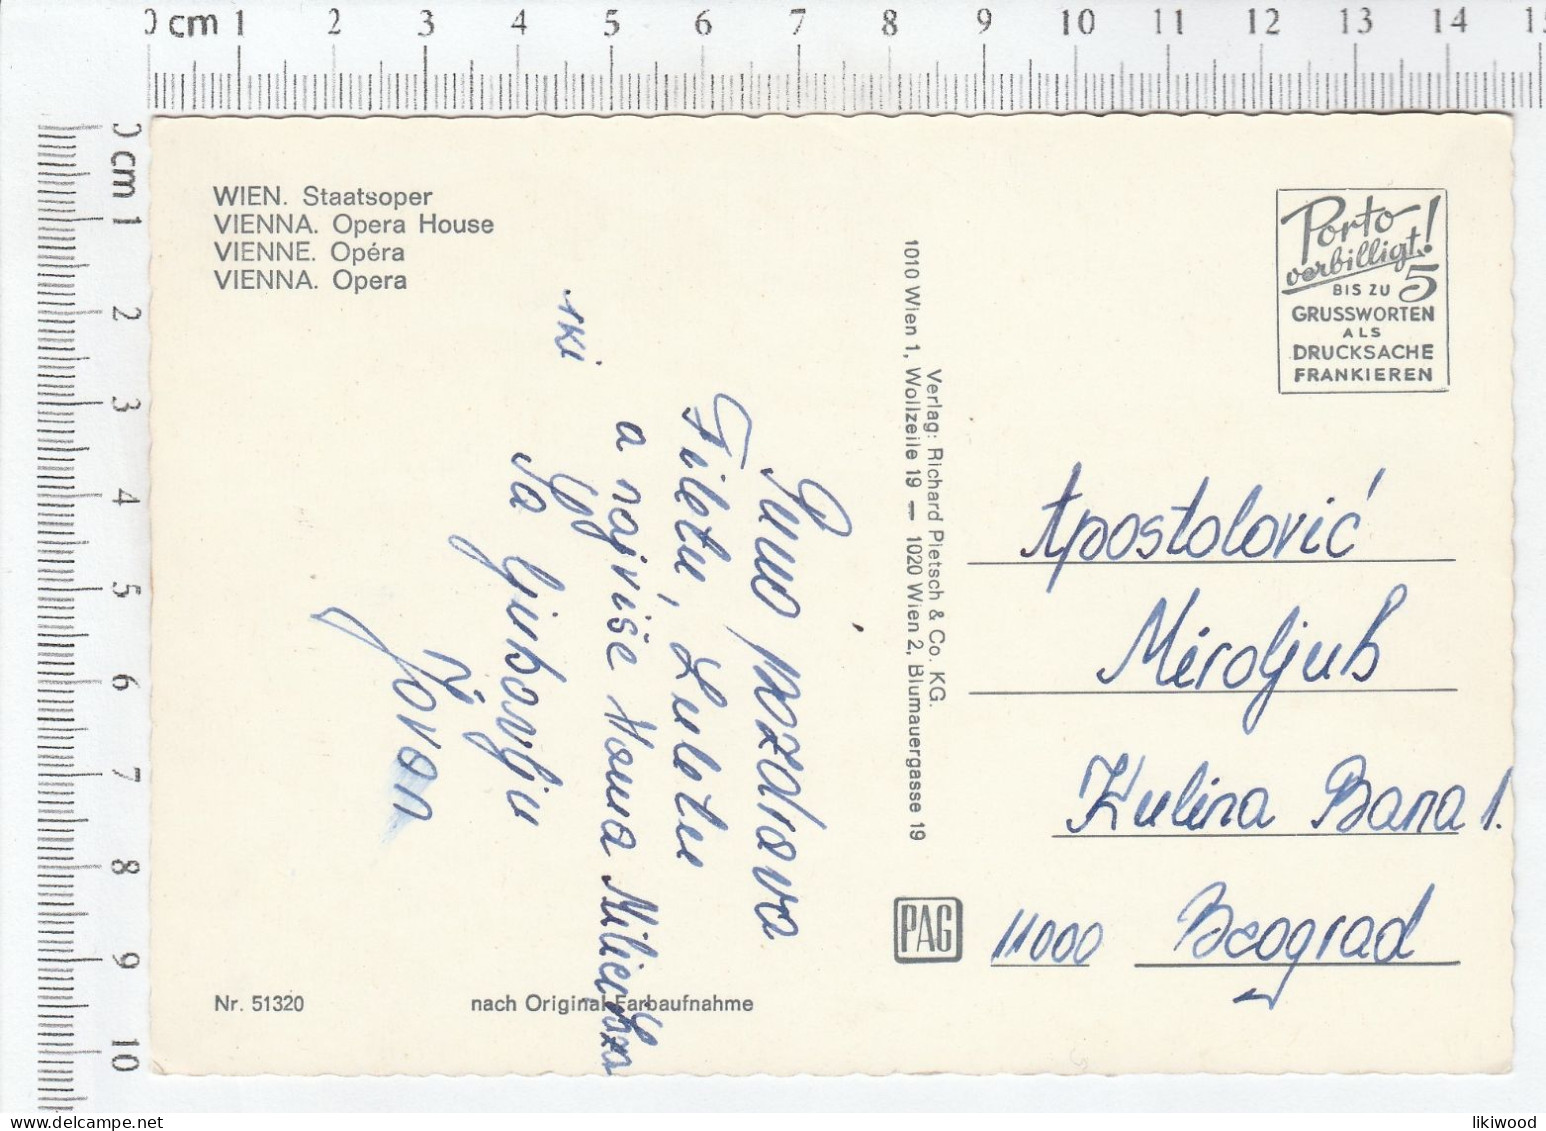 0 cm 1 2 3 4 5 6 7 8 9 10 11 12 13 14 15
0 cm 1 2 3 4 5 6 7 8 9 10
WIEN. Staatsoper
VIENNA. Opera House
VIENNE. Opéra
VIENNA. Opera
Puno pozdrava
Filetu, Luletu
a najviše Mama Milici za
Sa ljubavlju
Jovan
Nr. 51320
nach Original-Farbaufnahme
Verlag: Richard Pietsch & Co. KG.
1010 Wien 1, Wollzeile 19 — 1020 Wien 2, Blumauergasse 19
PAG
Porto
verbilligt!
BIS ZU 5
GRUSSWORTEN
ALS
DRUCKSACHE
FRANKIEREN
Apostolović
Miroljub
Kulina Bana 1.
11000 Beograd
likiwood